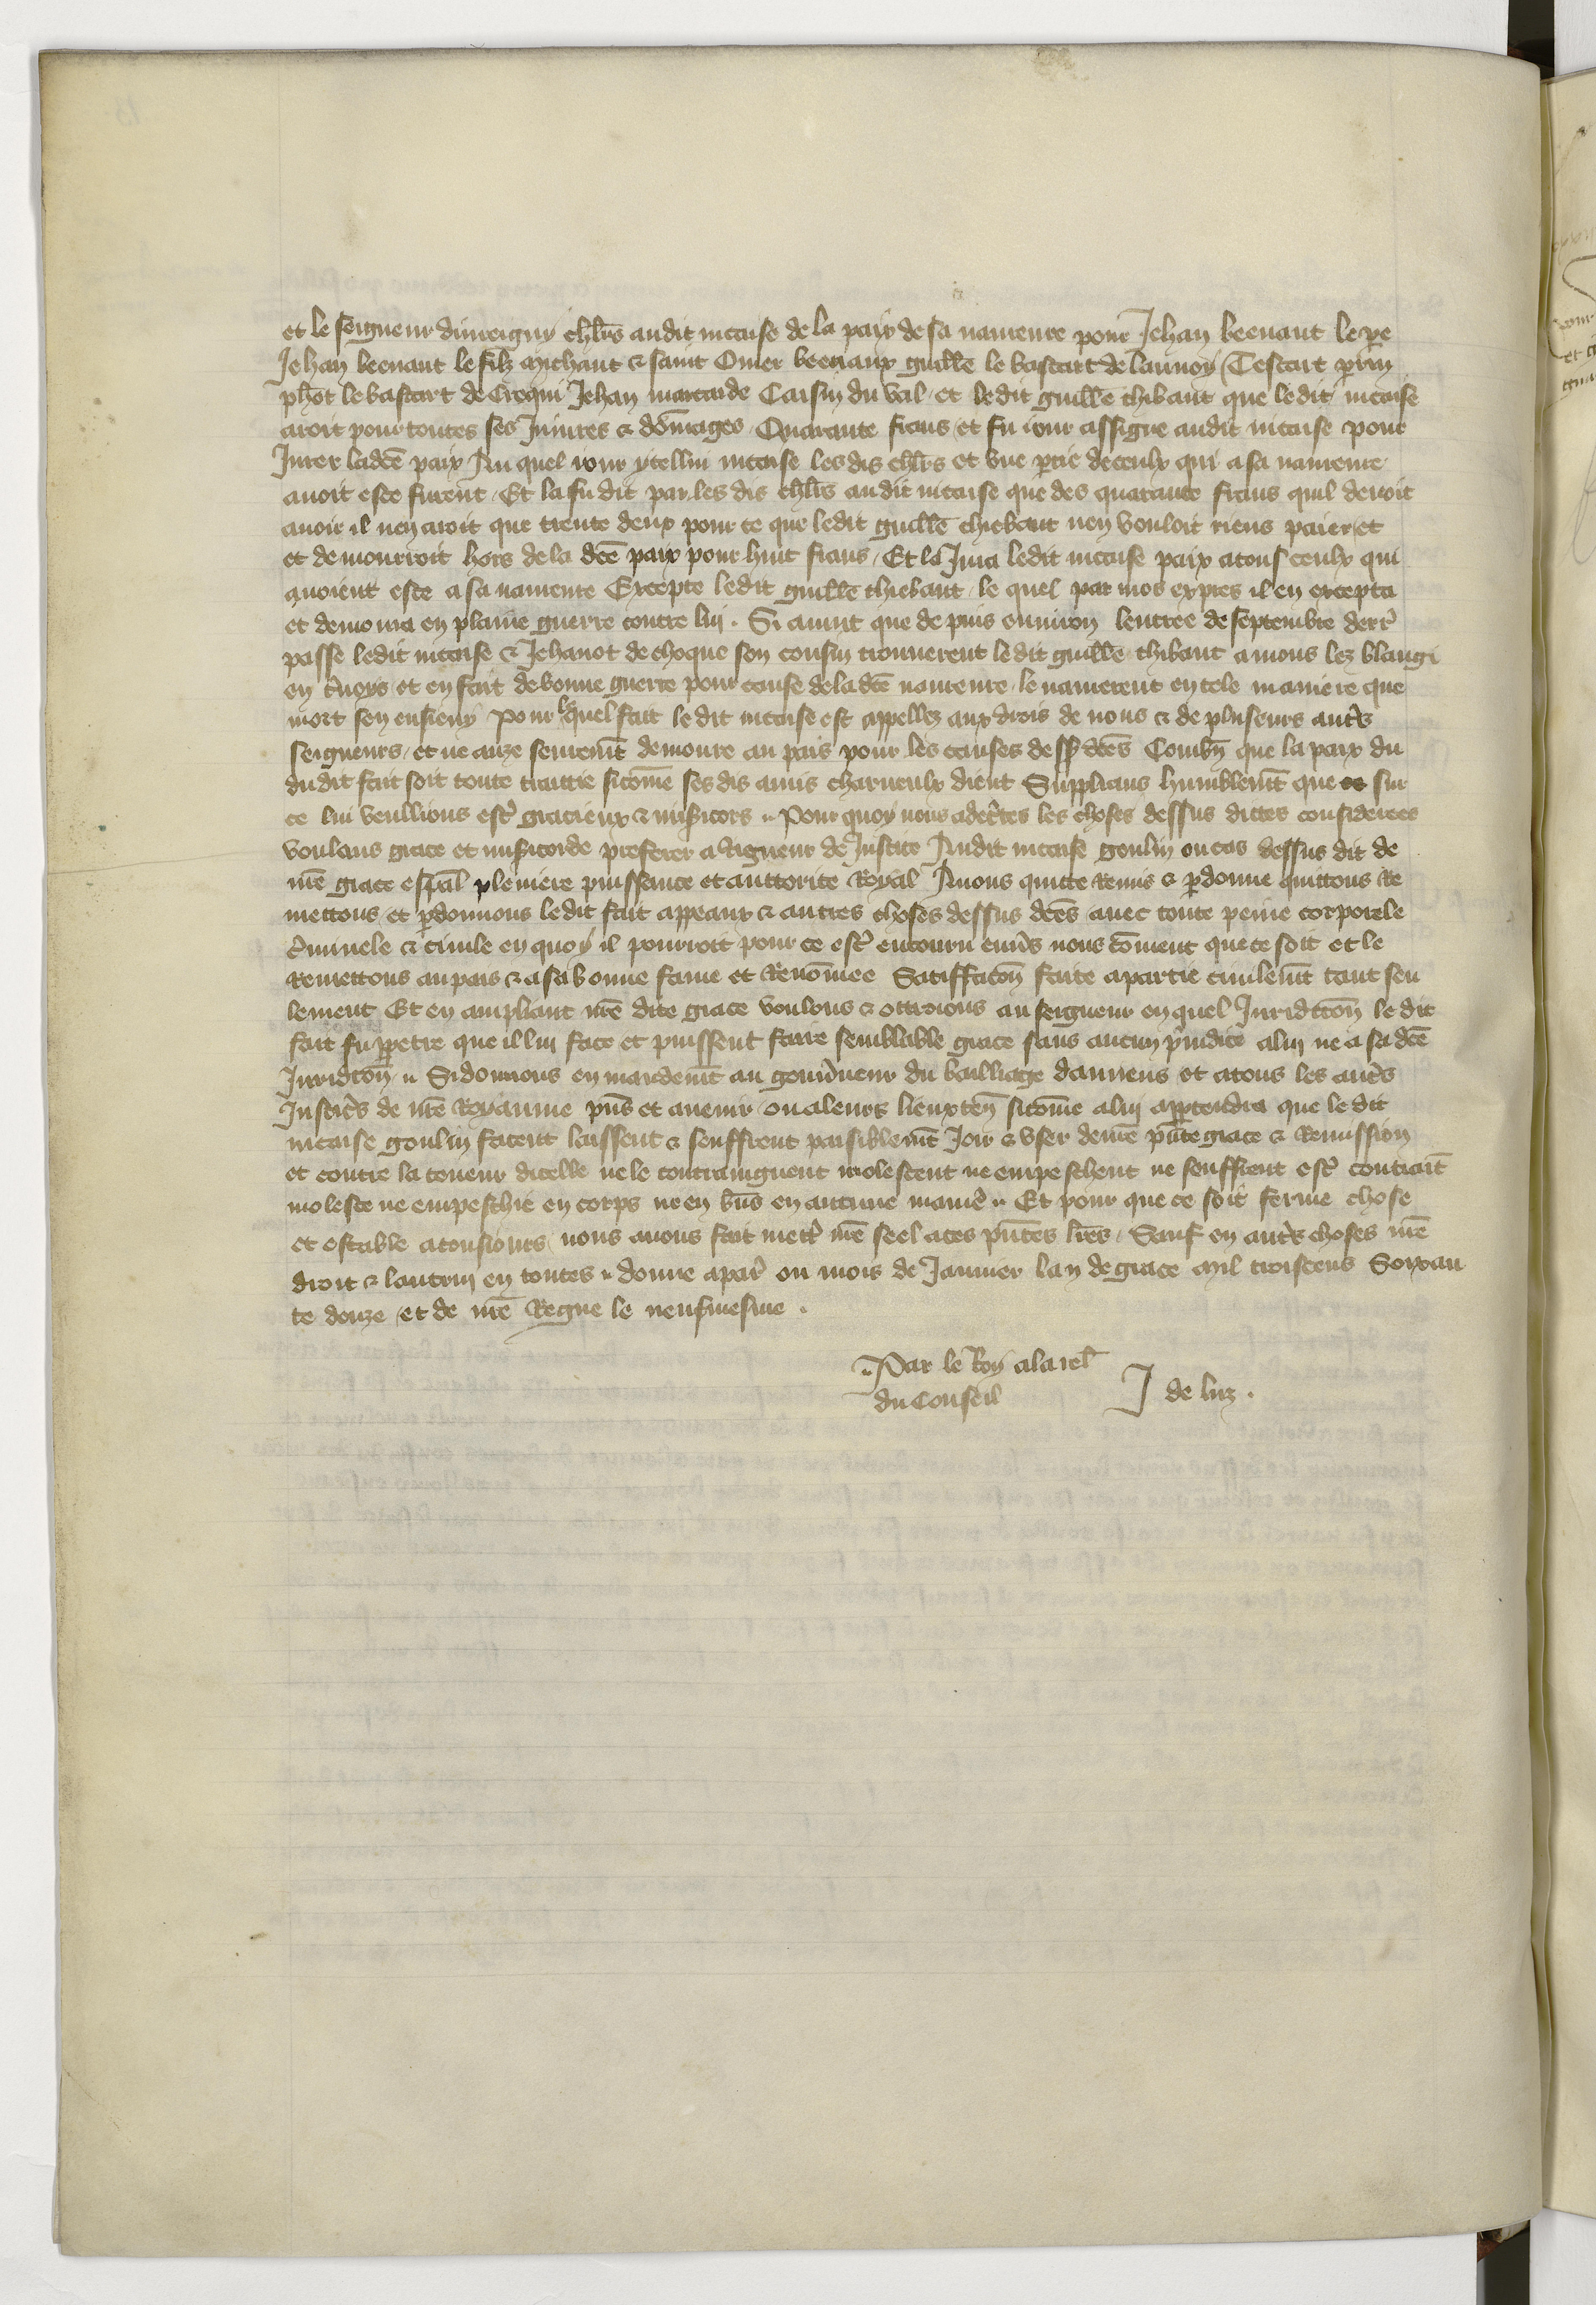 et le seigneur dimcigny chl̅rs audit nicaise de la paix de sa navreure pour Jehan beenaut le pe
Jehan beenaut le filz michaut & saint Omer beeniaux guille̅ le bastart de launoy Testart prin
ph̅ot le bastart de Crequi Jehan marcarde Caisin du val et ledit guille̅ thibaut que ledit nicaise
aroit pour toutes ses Iniures & do̅mages Quarante frans et fu iour assigne audit nicaise pour
Iurer ladce̅ paix Au quel iour ycellui nicaise lesdis chl̅rs et une ptie de ceulx qui a sa navreure
avoit este furent Et la fu dit par les dis chl̅rs audit nicaise que des quarante frans quil devoit
avoir il nen aroit que trente deux pour ce que ledit guille̅ thiebaut nen vouloit riens paier et
et demourroit hors de la dce̅ paix pour huit frans Et la Jura ledit nicaise paix a tous ceulx qui
avoient este a sa navreure Excepte ledit guille̅ thiebaut le quel par mos expres il en excepta
et demoura en plaine guerre contre lui. Si avint que depuis environ lentree de septembre derr̅
passe ledit nicaise & Jehanot de choque son cousin trouverent ledit guille̅ thibaut a mons lez blangi
en t̅noys et en fait de bonne guerre pour cause de la dce̅ navreure le navrerent en tele maniere que
mort sen ensieuy Pour le quel fait le dit nicaise est appellez aux drois de nous & de pluseurs aut̅s
seigneurs et ne auze seurem̅t demoure au pais pour les causes dess̅ dce̅s Combn̅ que la paix du
dudit fait soit toute traittie sico̅me ses dis amis charneulx dient Supplians humblem̅t que sur
ce lui veullions est̅ gracieux & mis̅icors Pour quoy nous adc̅tes les choses dessus dictes considerees
voulans grace et mis̅icorde preferer a rigueur de Justice Audit nicaise goulin ou cas dessus dit de
nr̅e grace esp̅al pleniere puissance et auttorite Royal Avons quitte Remis & p̅donne quittons Re
mettons et p̅donnons ledit fait appeaux & autres choses dessus dce̅s avec toute peine corporele
c̅minele & civile en quoy il pourroit pour ce est̅ encouru env̅s nous co̅ment que ce soit et le
Remettons au pais & a sa bonne fame et Reno̅mee Satiffaco̅n faite a partie civilem̅t tant seu
lement Et en ampliant nr̅e dite grace voulons & ottroions au seigneur en quel Juridico̅n le dit
fait fu ppetre que il lui face et puissent faire semblable grace sans aucun p̅iudice a lui ne a sa dce̅
Juridco̅n Si donnons en mandem̅t au gouv̅neur du bailliage damiens et a tous les aut̅s
Justic̅s de nr̅e Royaume pn̅s et avenir ou a leurs lieuxten̅ sico̅me a lui appartendra que le dit
nicaise goulin facent laissent & seuffrent paisiblem̅t Joir & user de nr̅e pn̅te grace & Remission
et contre la teneur dicelle ne le contraingnent molestent ne empeschent ne seuffrent est̅ contrai̅t
moleste ne empeschie en corps ne en bn̅s en aucune manie̅ Et pour que ce soit ferme chose
et estable a tousiours nous avons fait mett̅ nr̅e seel a ces pn̅tes lr̅es Sauf en aut̅s choses nr̅e
droit & lautrui en toutes donne a par̅ ou mois de Janvier lan de grace mil troiscens Soixan
te douze et de nr̅e Regne le neufviesme.
Par le Roy a la rel̅
du Conseil
J de luz.